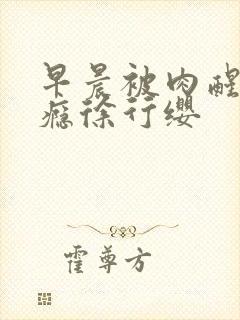 早晨被肉醒
瘾徐行缨
霍尊方